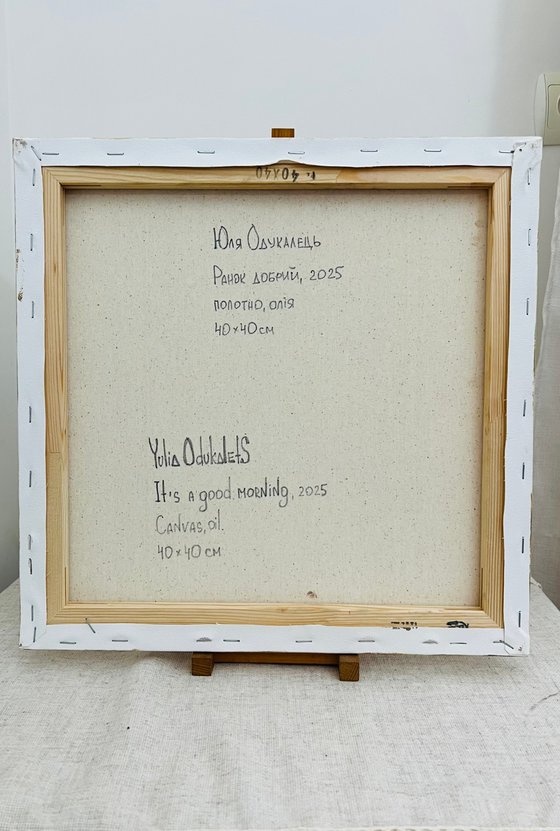 40x40
Юля Одукалець
Ранок добрий, 2025
полотно, олія
40×40 см
Yulia OdukaletS
It's a good morning, 2025
Canvas, oil.
40×40 см